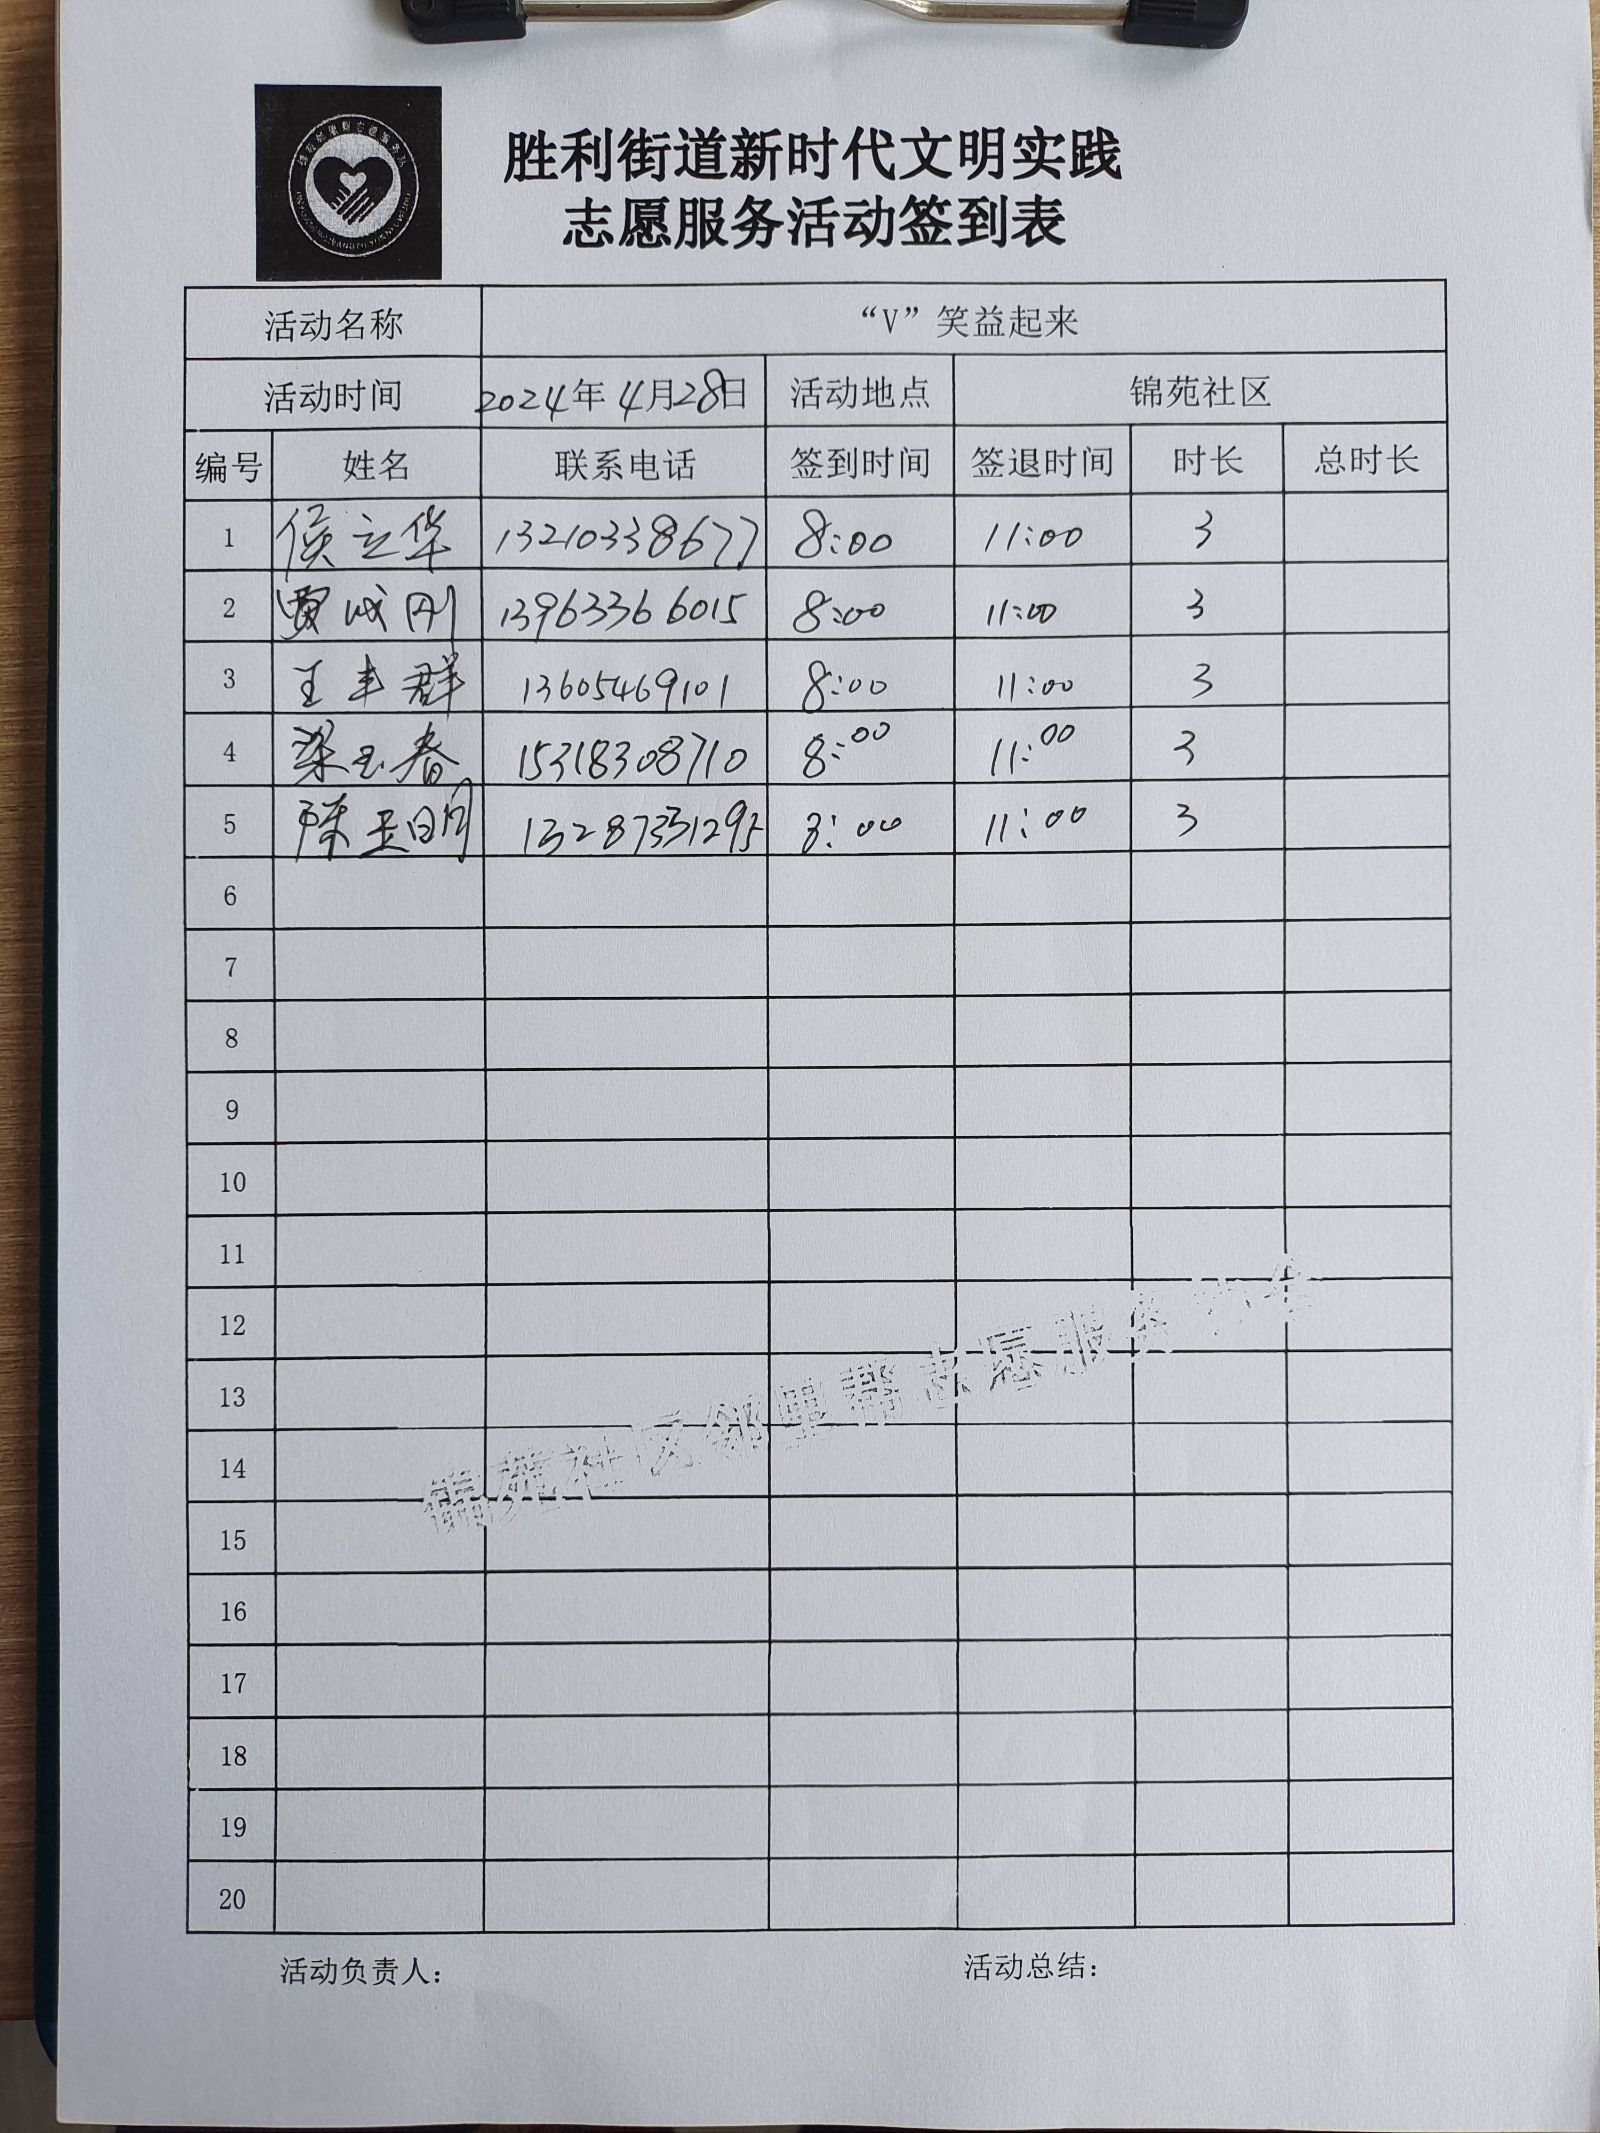 胜利街道新时代文明实践
志愿服务活动签到表
活动名称 “V”笑益起来
活动时间 2024年4月28日 活动地点 锦苑社区
编号 姓名 联系电话 签到时间 签退时间 时长 总时长
1 侯立华 13210338677 8:00 11:00 3
2 贾成刚 13963366015 8:00 11:00 3
3 王丰群 13605469101 8:00 11:00 3
4 梁玉春 15318308710 8:00 11:00 3
5 陈玉明 13287331295 8:00 11:00 3
6
7
8
9
10
11
12
13
14
15
16
17
18
19
20
锦苑社区邻里帮志愿服务协会
活动负责人: 活动总结: